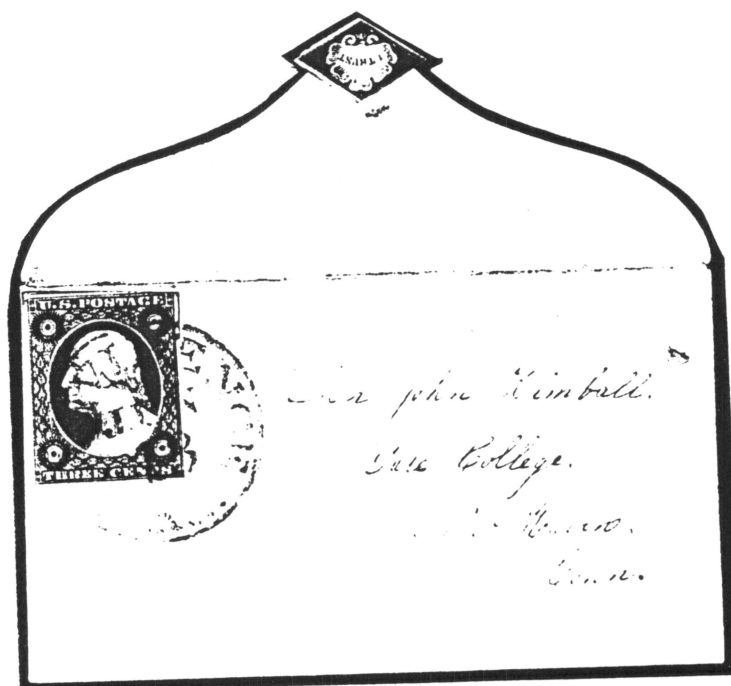 I TRUST
U.S. POSTAGE
THREE CENTS
John Kimball.
Yale College.
Haven.
Conn.